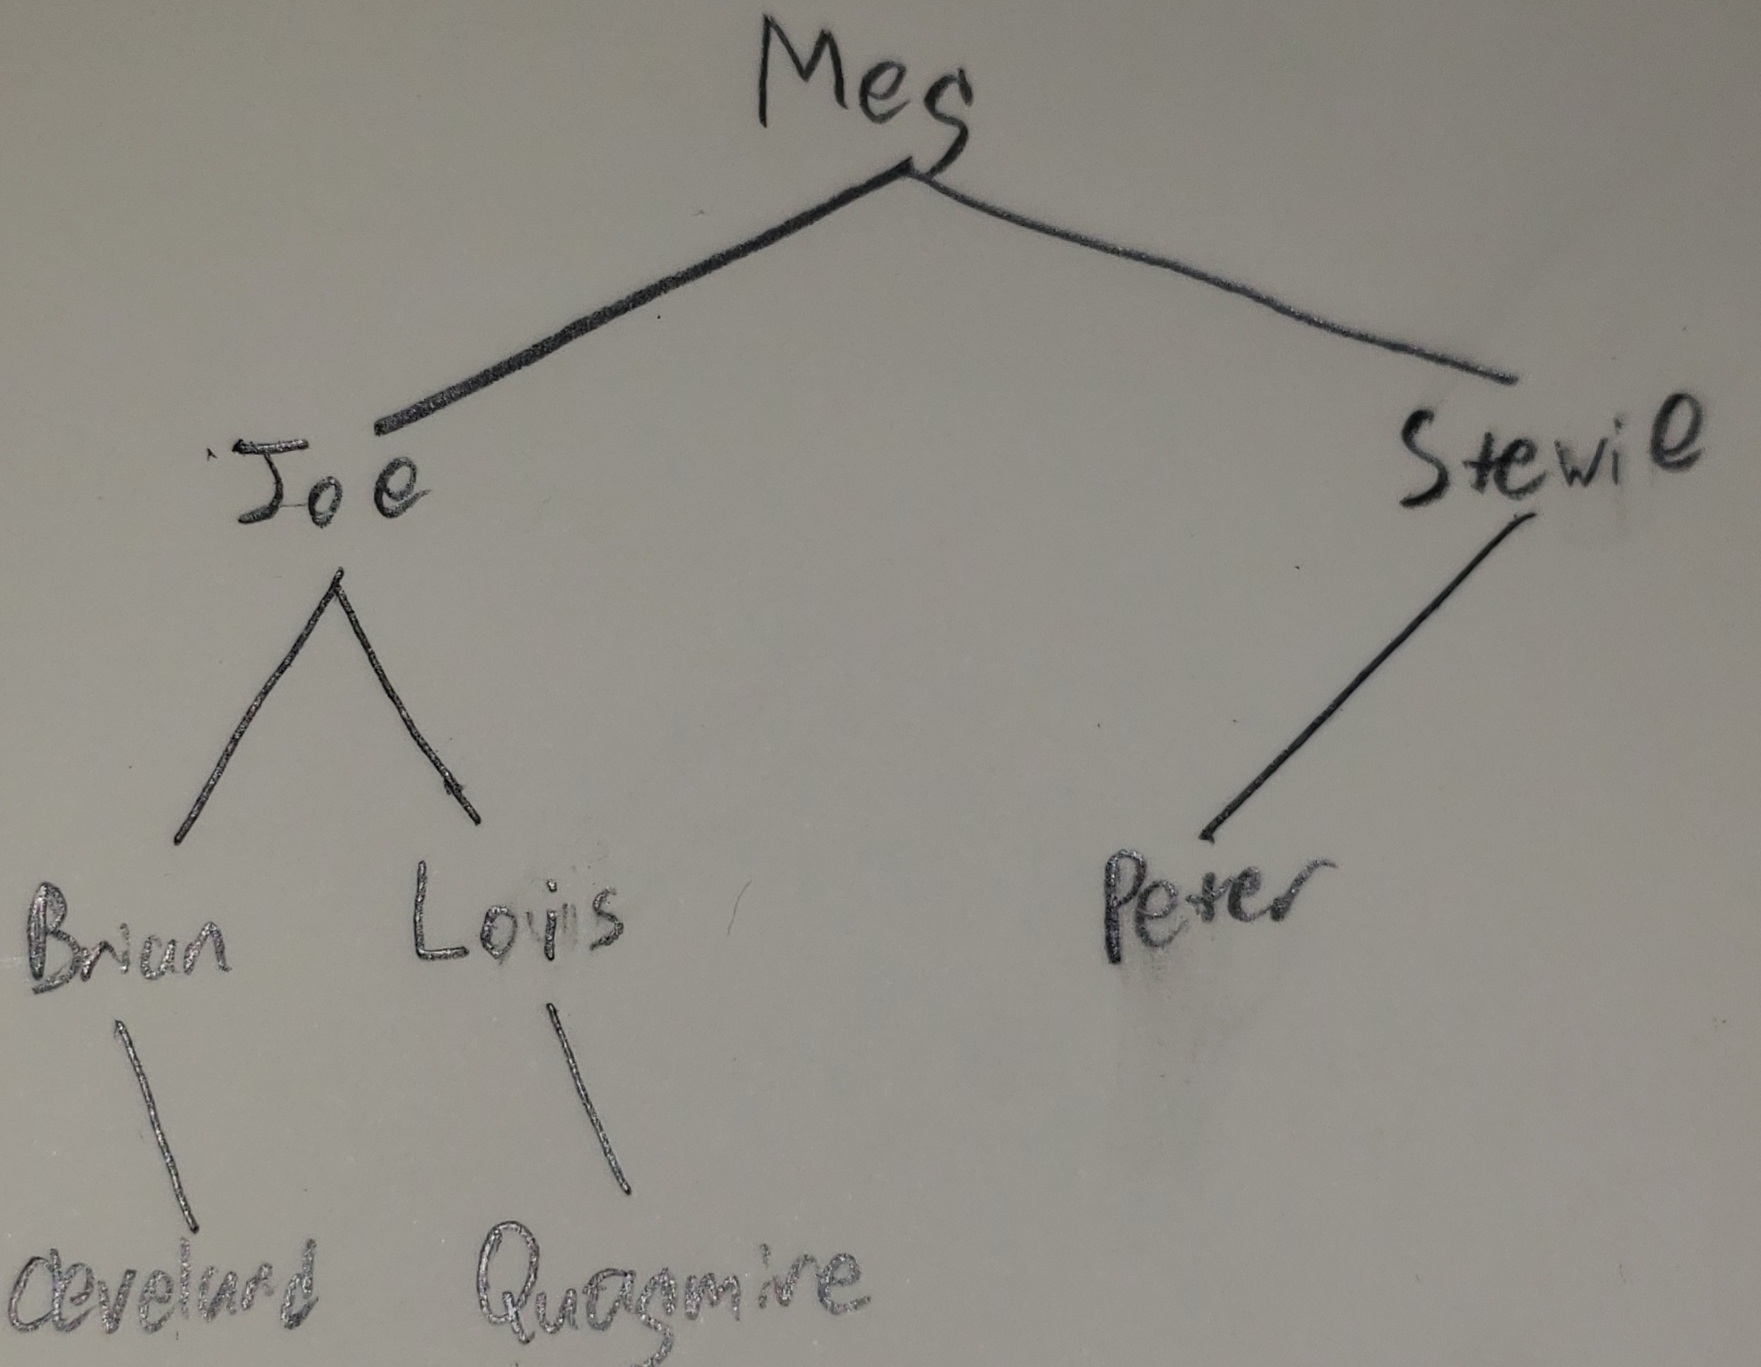 Meg
Joe
Stewie
Brian
Lois
Peter
Cleveland
Quagmire